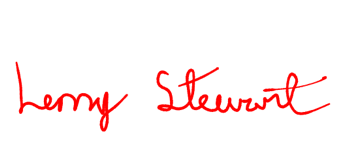 Lenny Stewart